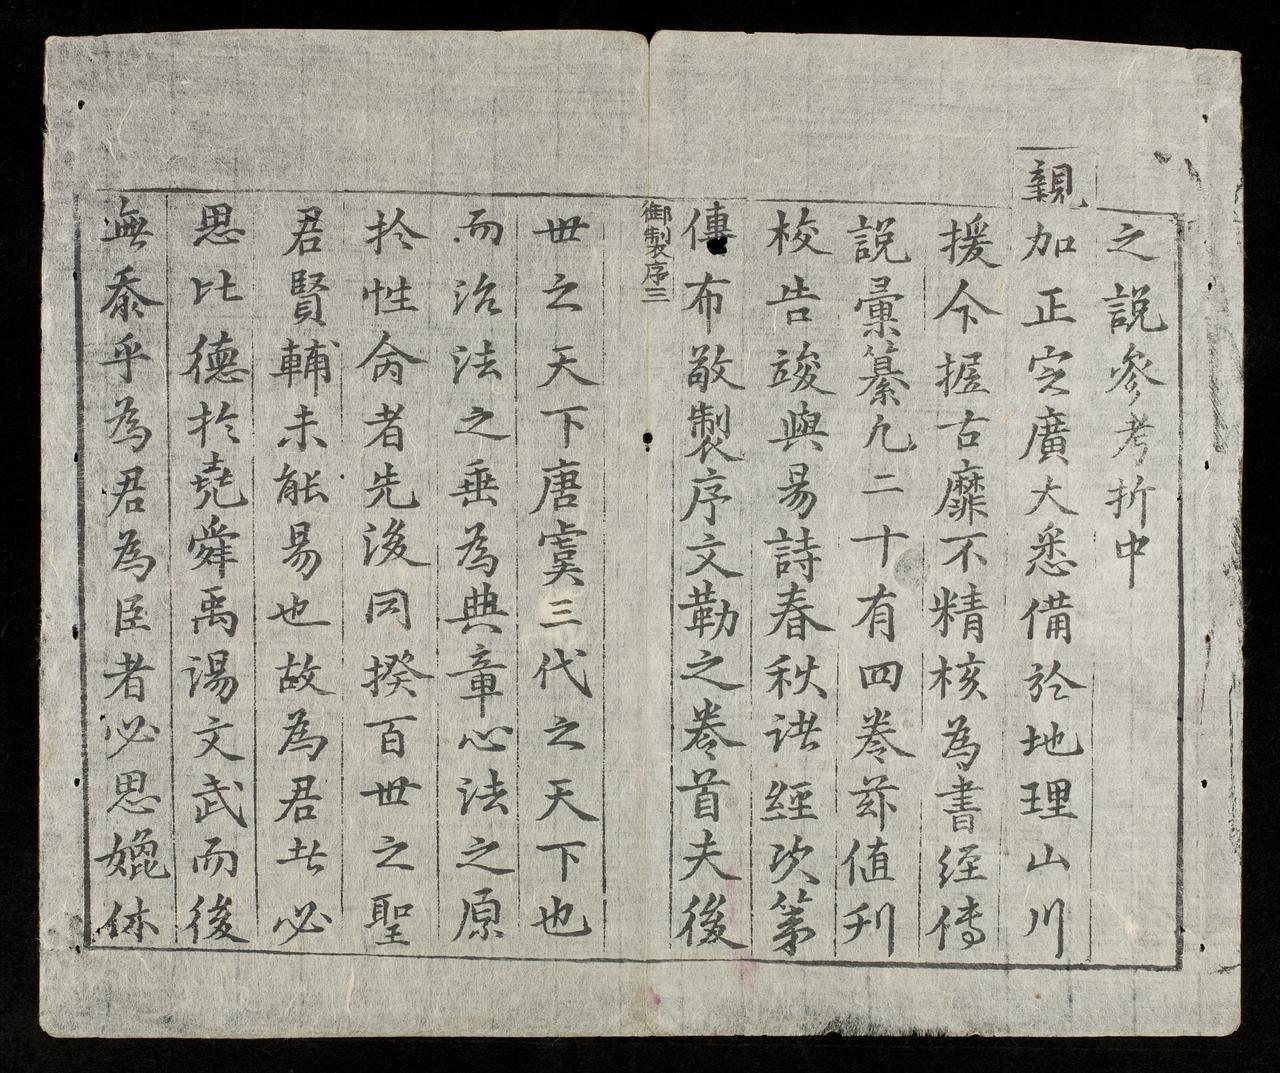 之說參考折中
親加正㝎廣大悉備於地理山川
援今握古靡不精核為書經傳
說彙纂凡二十有四卷茲值刋
校告竣與易詩春秋諸經次第
傳布敬製序文勒之卷首夫後
御製序三
世之天下唐虞三代之天下也
而治法之垂為典章心法之原
扵性命者先後同揆百世之聖
君賢輔未能易也故為君者必
思比德扵堯舜禹湯文武而後
無忝乎為君為臣者必思媲休